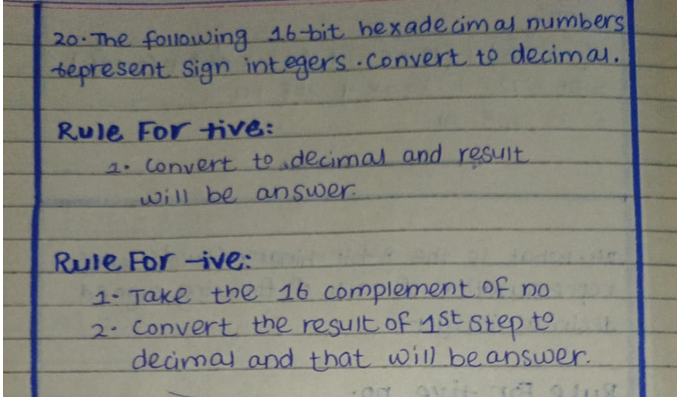 20. The following 16-bit hexadecimal numbers
represent sign integers. Convert to decimal.
Rule For +ive:
1. Convert to decimal and result
will be answer.
Rule For -ive:
1- Take the 16 complement of no
2- Convert the result of 1st step to
decimal and that will be answer.